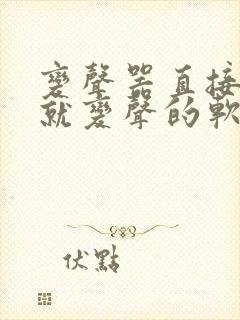 變聲器直接
就變聲的軟
伏點